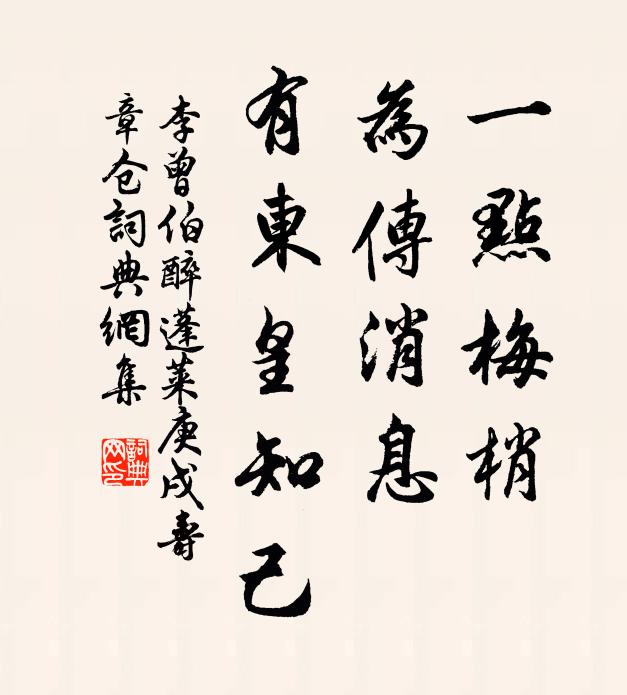 一點梅梢
為傳消息
有東皇知己
李曾伯醉蓬萊庚戌壽
章仓詞典網集
詞典網印